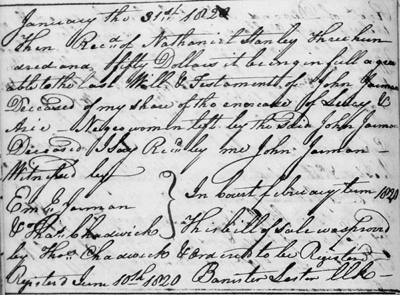 January the 31st 1820
Then Recd of Nathaniel Stanley three hun
dred and fifty Dollars it being in full agree
able to the Last Will & Testament of John Jarman
Deceased of my share of the encrease of Lucy &
Arie - Negro women left by the said John Jarman
Deceased I Say Recd by me John Jarman
Witnesed by
Em. G. Jarman
& Thos Chadwick
In Court february term 1820
This bill of Sale was proved
by Thos Chadwick & Ordered to be Registered
Registerd June 10th 1820 Banister Lester CCK